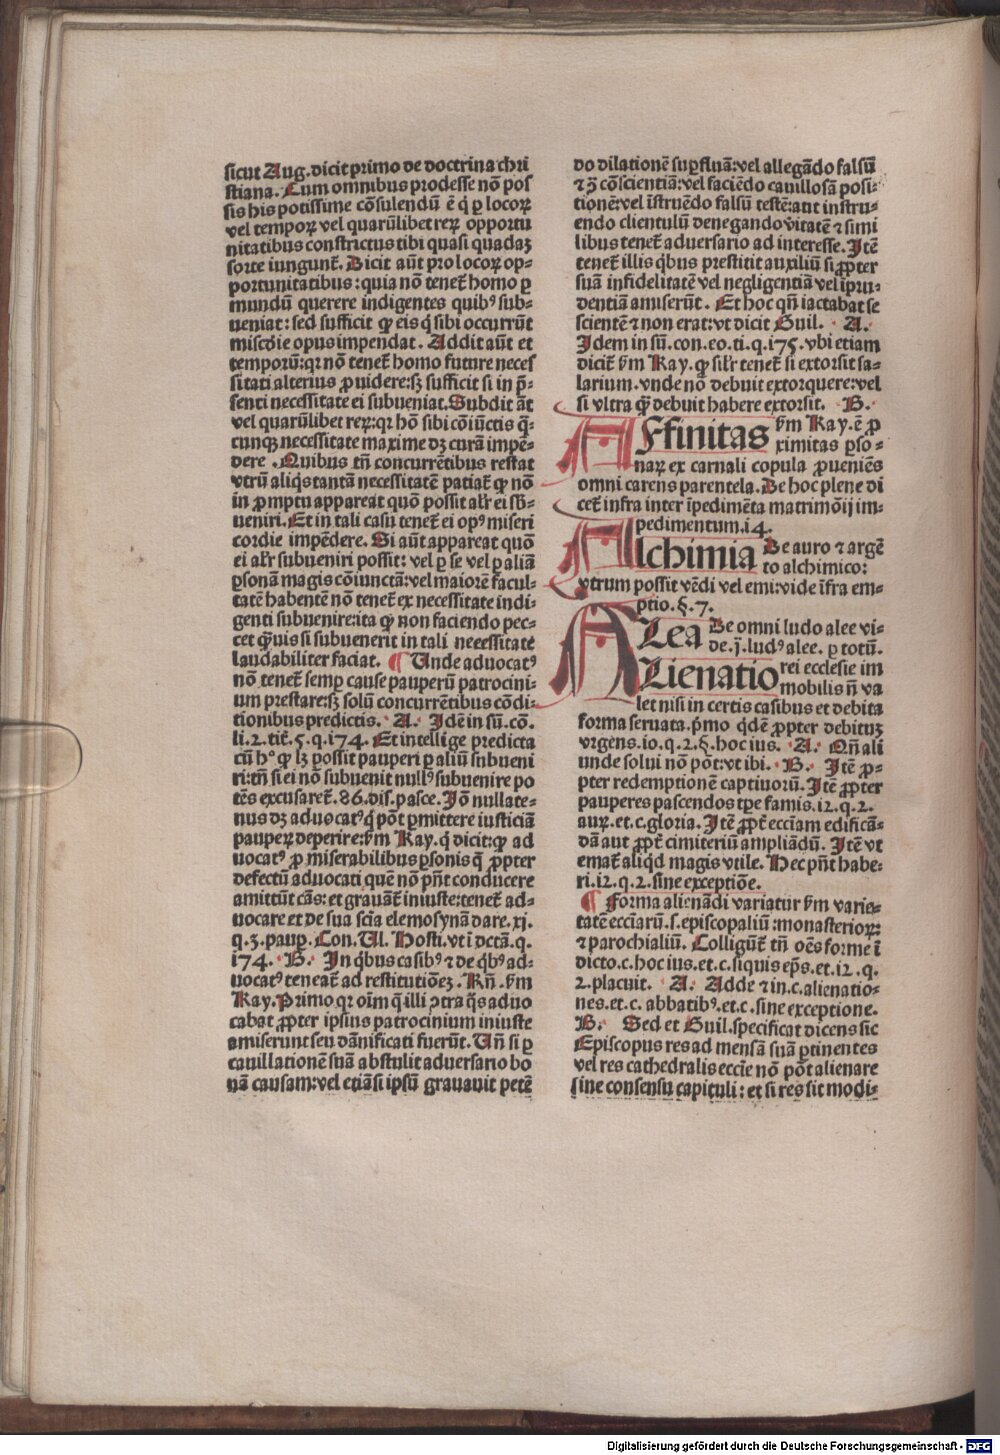 sicut Aug. dicit primo de doctrina chri
stiana. Cum omnibus prodesse nō pos
sis his potissime cōsulendū ē q̇ ꝑ locoꝝ
vel tempoꝝ vel quarūlibet reꝝ opportu
nitatibus constrictus tibi quasi quadaꝫ
sorte iungunt᷑. Dicit aūt pro locoꝝ op-
portunitatibus: quia nō tenet᷑ homo ꝑ
mundū querere indigentes quibꝰ sub-
ueniat: sed sufficit ꝙ eis q̇ sibi occurrūt
miscd̄ie opus impendat. Addit aūt et
temporū: qr nō tenet᷑ homo future neces
sitati alterius ꝓuidere: sꝫ sufficit si in p̄-
senti necessitate ei subueniat. Subdit āt
vel quarūlibet reꝝ: qr hō sibi cōiūctis q̄-
cunqꝫ necessitate maxime dꝫ curā impē-
dere. Quibus tn̄ concurrētibus restat
vtrū aliq̇s tantā necessitatē patiat᷑ ꝙ nō
in ꝓmptu appareat quō possit alr̄ ei sb̄-
ueniri. Et in tali casu tenet᷑ ei opꝰ miseri
cordie impēdere. Si aūt appareat quō
ei alr̄ subueniri possit: vel ꝑ se vel ꝑ aliā
ꝑsonā magis cōiunctā: vel maiorē facul-
tatē habentē nō tenet᷑ ex necessitate indi-
genti subuenire: ita ꝙ non faciendo pec-
cet ꝙuis si subuenerit in tali necessitate
laudabiliter faciat. ¶ Unde aduocatꝰ
nō tenet᷑ semꝑ cause pauperū patrocini-
um prestare: sꝫ solū concurrētibus cōdi-
tionibus predictis. A. Idē in sū. cō.
li. 2. tit᷑. 5. q. 174. Et intellige predicta
cū hͦ ꝙ lꝫ possit pauperi ꝑ aliū subueni
ri: tn̄ si ei nō subuenit nullꝰ subuenire po
tēs excusaret᷑. 86. dis. pasce. Iō nullate-
nus dꝫ aduocatꝰ q̇ pōt ꝑmittere iusticiā
paupeꝝ deperire: ẜm Ray. q̇ dicit: ꝙ ad
uocatꝰ ꝓ miserabilibus ꝑsonis q̄ ꝓpter
defectū aduocati quē nō pn̄t conducere
amittūt cās: et grauāt᷑ iniuste: tenet᷑ ad-
uocare et de sua sciā elemosynā dare. xj.
q. 3. pauꝑ. Con. Ul. Hosti. vt ī dctā. q.
174. B. In q̇bus casibꝰ ⁊ de q̇bꝰ ad-
uocatꝰ teneat᷑ ad restitutiōeꝫ. Rn̄. ẜm
Ray. Primo qr oīm q̄ illi ↄtra q̄s aduo
cabat ꝓpter ipsius patrocinium iniuste
amiserunt seu dānificati fuerūt. Un̄ si ꝑ
cauillationē suā abstulit aduersario bo
nā causam: vel etiā si ipsū grauauit petē
do dilationē suꝑfluā: vel allegādo falsū
⁊ ꝯ̄ cōscientiā: vel faciēdo cauillosā posi-
tionē: vel īstruēdo falsū testē: aut instru-
endo clientulū denegando v̇itatē ⁊ simi
libus tenet᷑ aduersario ad interesse. Itē
tenet᷑ illis q̇bus prestitit auxiliū si ꝓpter
suā infidelitatē vel negligentiā vel īpru-
dentiā amiserūt. Et hoc qn̄ iactabat se
scientē ⁊ non erat: vt dicit Guil. A.
Idem in sū. con. eo. ti. q. 175. vbi etiam
dicit᷑ ẜm Ray. ꝙ silr̄ tenet᷑ si extorsit sa-
larium. vnde nō debuit extorquere: vel
si vltra ꝙ̄ debuit habere extorsit. B.
AFfinitas ẜm Ray. ē ꝓ
ximitas ꝑso-
naꝝ ex carnali copula ꝓueniēs
omni carens parentela. De hoc plene di
cet᷑ infra inter īpedimēta matrimōij im-
pedimentum. 14.
Alchimia De auro ⁊ argē
to alchimico:
vtrum possit vēdi vel emi: vide īfra em-
ptio. §. 7.
ALea De omni ludo alee vi-
de. j̄. ludꝰ alee. ꝑ totū.
ALienatio rei ecclesie im
mobilis n̄ va
let nisi in certis casibus et debita
forma seruata. p̄mo q̇dē ꝓpter debituꝫ
vrgens. 10. q. 2. §. hoc ius. A. Qn̄ ali
unde solui nō pōt: vt ibi. B. Itē ꝓ-
pter redemptionē captiuorū. Itē ꝓpter
pauperes pascendos tp̄e famis. 12. q. 2.
auꝝ. et. c. gloria. Itē ꝓpt᷑ ecciam edificā-
dā aut ꝓpt᷑ cimiteriū ampliādū. Itē vt
emat᷑ aliq̇d magis vtile. Hec pn̄t habe-
ri. 12. q. 2. sine exceptiōe.
¶ Forma alienādi variatur ẜm varie-
tatē ecciarū. s. episcopaliū: monasterioꝝ:
⁊ parochialiū. Colligūt᷑ tn̄ oēs forme ī
dicto. c. hoc ius. et. c. siquis ep̄s. et. 12. q.
2. placuit. A. Adde ⁊ in. c. alienatio-
nes. et. c. abbatibꝰ. et. c. sine exceptione.
B. Sed et Guil. specificat dicens sic
Episcopus res ad mensā suā ꝑtinentes
vel res cathedralis eccie nō pōt alienare
sine consensu capituli: et si res sit modi-
Digitalisierung gefördert durch die Deutsche Forschungsgemeinschaft - DFG